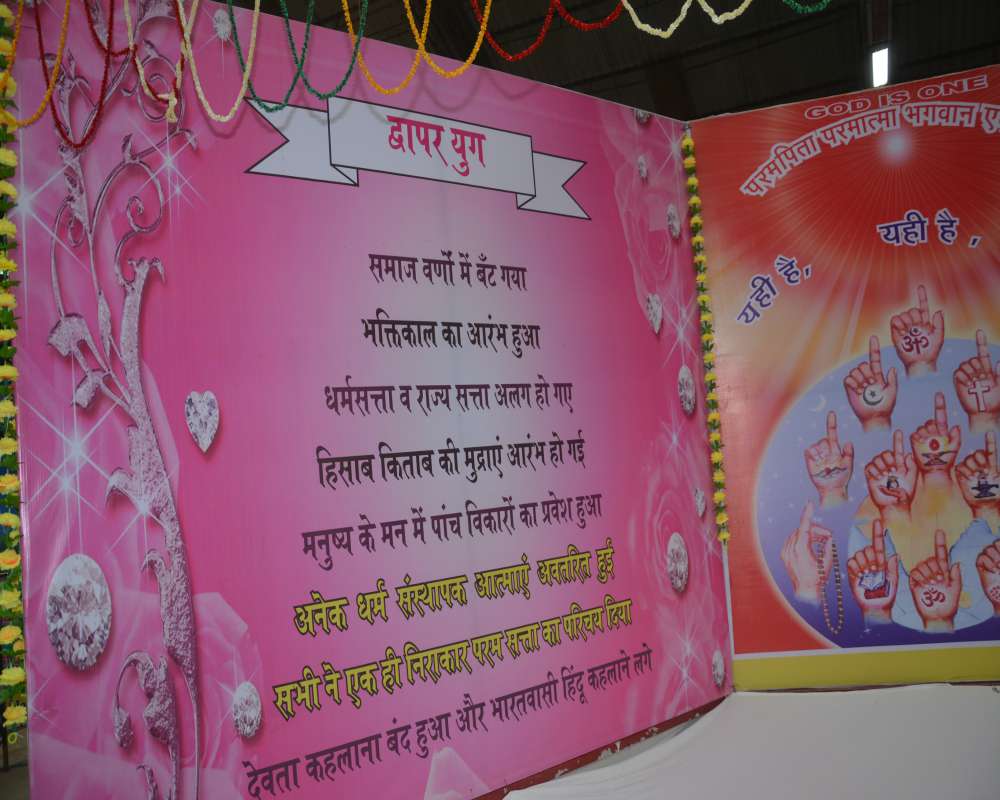 द्वापर युग
समाज वर्णों में बँट गया
भक्तिकाल का आरंभ हुआ
धर्मसत्ता व राज्य सत्ता अलग हो गए
हिसाब किताब की मुद्राएं आरंभ हो गई
मनुष्य के मन में पांच विकारों का प्रवेश हुआ
अनेक धर्म संस्थापक आत्माएं अवतरित हुई
सभी ने एक ही निराकार परम सत्ता का परिचय दिया
देवता कहलाना बंद हुआ और भारतवासी हिंदू कहलाने लगे
GOD IS ONE
परमपिता परमात्मा भगवान
यही है,
यही है,
ॐ
ॐ